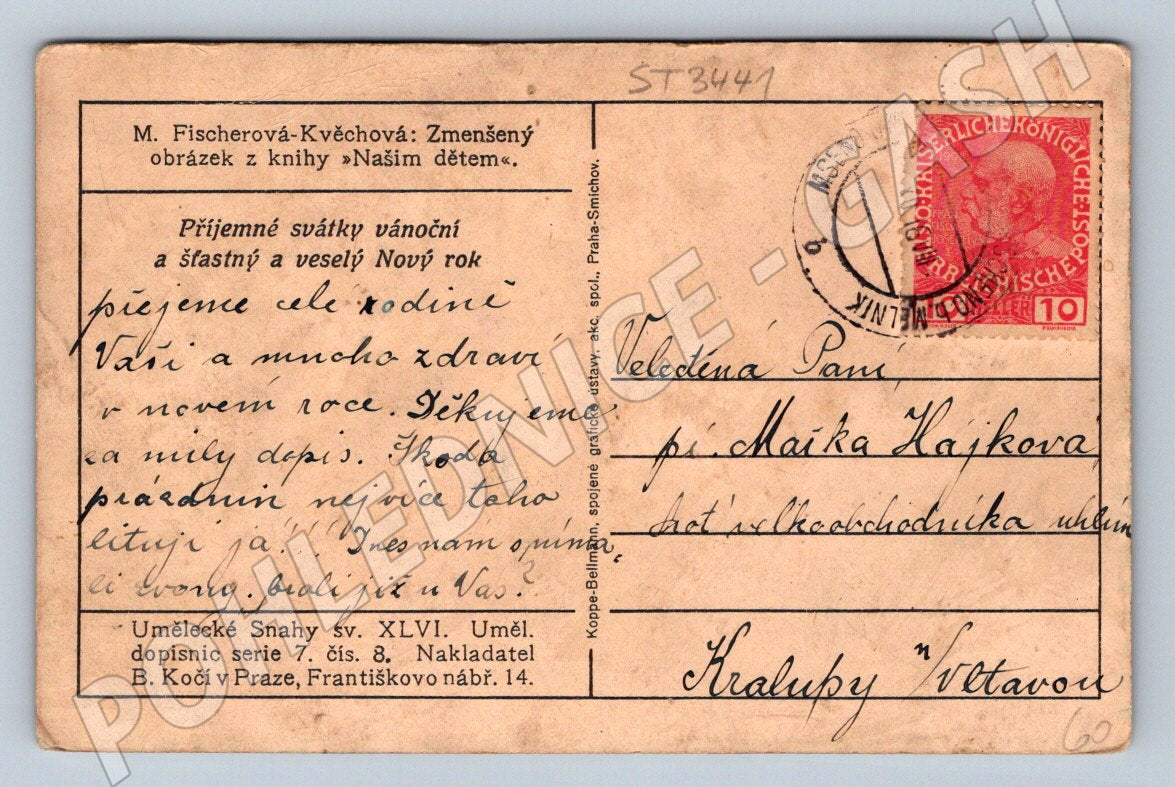 ST3441
M. Fischerová-Kvěchová: Zmenšený
obrázek z knihy »Našim dětem«.
Příjemné svátky vánoční
a šťastný a veselý Nový rok
přejeme cele rodině
Vaší a mnoho zdraví
v novém roce. Děkujeme
za milý dopis. Škoda
prázdnin nejvíce toho
lituji já
Dnes nám sníma-
li zvony, brali již u Vas?
Umělecké Snahy sv. XLVI. Uměl.
dopisnic serie 7. čís. 8. Nakladatel
B. Kočí v Praze, Františkovo nábř. 14.
Koppe-Bellmann, spojené grafické ústavy, akc. spol., Praha-Smíchov.
KAISERLICHE KÖNIGLICHE
ÖSTERREICHISCHE POST
10 HELLER 10
MĚLNÍK
b
Veleděná Paní
pí. Mařka Hájková
choť velkoobchodníka uhlím
Kralupy n/Vltavou
60
POHLEDNICE - GASH